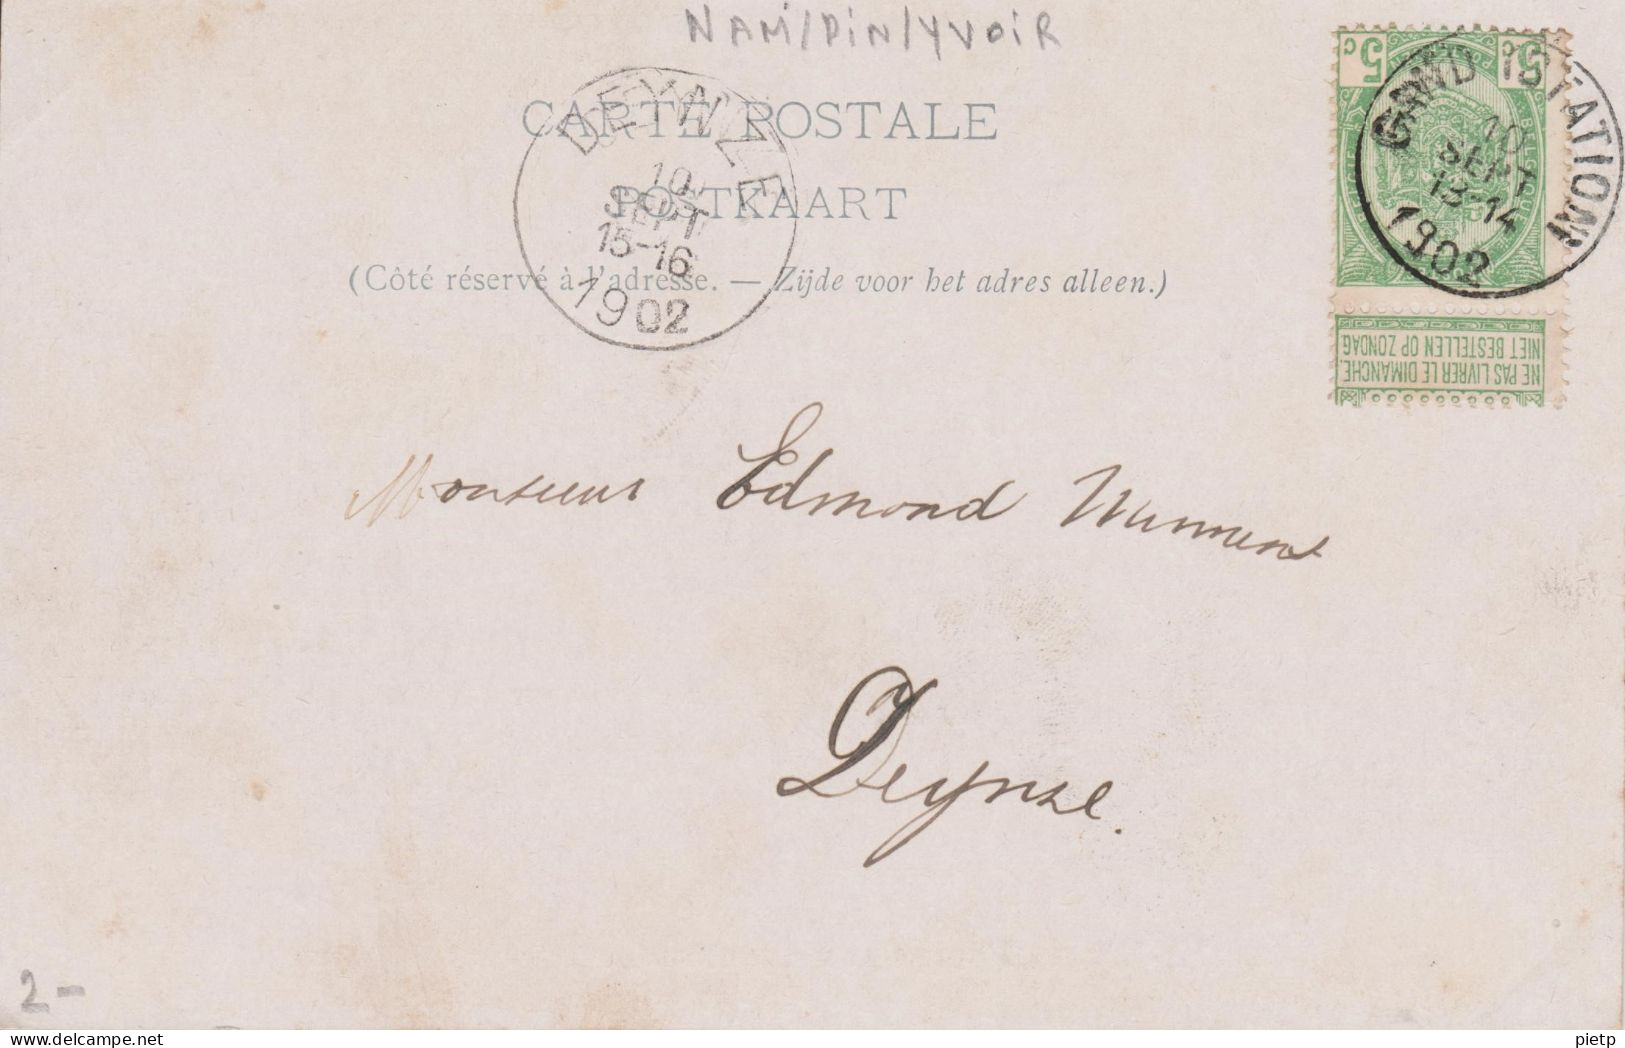 NAM/DIN/YVOIR
CARTE POSTALE
POSTKAART
(Côté réservé à l'adresse. — Zijde voor het adres alleen.)
DEYNZE
10
SEPT
15-16
1902
5c 5c
GAND (STATION)
10
SEPT
13-14
1902
NIET BESTELLEN OP ZONDAG
NE PAS LIVRER LE DIMANCHE.
Monsieur Edmond
Deynze.
2-
delcampe.net
pietp